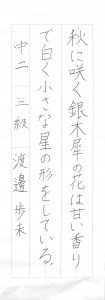 秋に咲く銀木犀の花は甘い香り
で白く小さな星の形をしている。
中二 三級 渡邉歩未